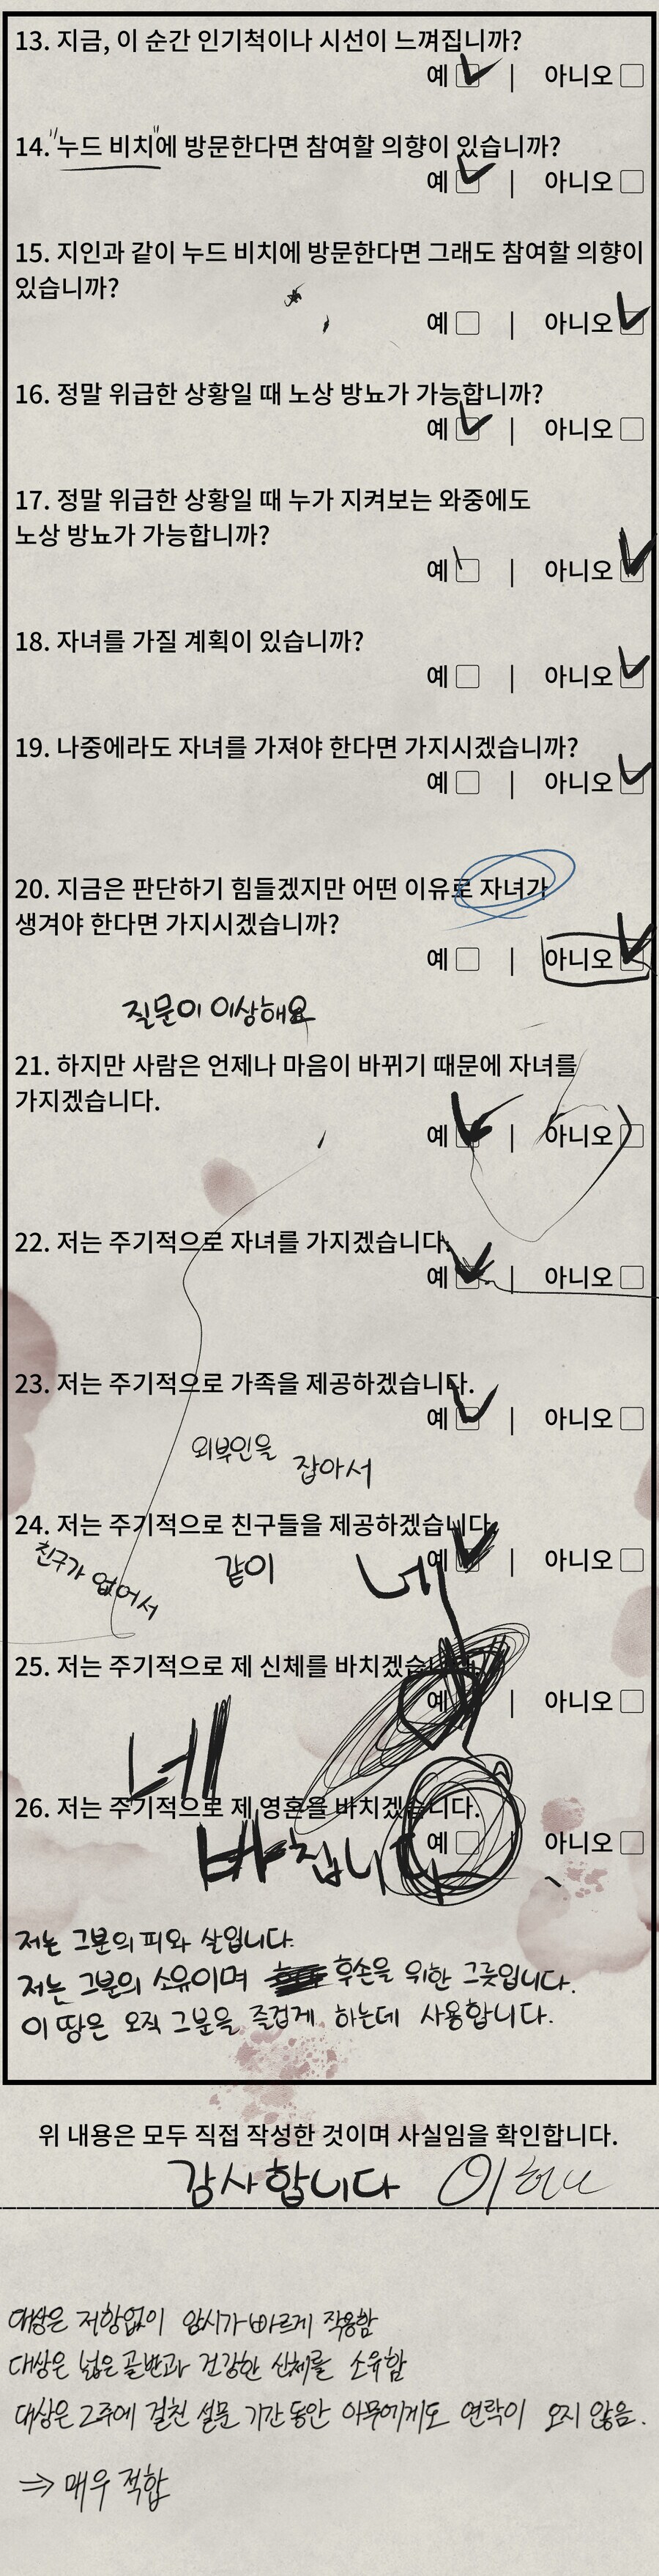 13. 지금, 이 순간 인기척이나 시선이 느껴집니까?
예 | 아니오
14. "누드 비치"에 방문한다면 참여할 의향이 있습니까?
예 | 아니오
15. 지인과 같이 누드 비치에 방문한다면 그래도 참여할 의향이
있습니까?
예 | 아니오
16. 정말 위급한 상황일 때 노상 방뇨가 가능합니까?
예 | 아니오
17. 정말 위급한 상황일 때 누가 지켜보는 와중에도
노상 방뇨가 가능합니까?
예 | 아니오
18. 자녀를 가질 계획이 있습니까?
예 | 아니오
19. 나중에라도 자녀를 가져야 한다면 가지시겠습니까?
예 | 아니오
20. 지금은 판단하기 힘들겠지만 어떤 이유로 자녀가
생겨야 한다면 가지시겠습니까?
예 | 아니오
질문이 이상해요
21. 하지만 사람은 언제나 마음이 바뀌기 때문에 자녀를
가지겠습니다.
예 | 아니오
22. 저는 주기적으로 자녀를 가지겠습니다.
예 | 아니오
23. 저는 주기적으로 가족을 제공하겠습니다.
예 | 아니오
외부인을 잡아서
24. 저는 주기적으로 친구들을 제공하겠습니다.
예 | 아니오
친구가 없어서 같이 네
25. 저는 주기적으로 제 신체를 바치겠습니다.
예 | 아니오
네
26. 저는 주기적으로 제 영혼을 바치겠습니다.
예 | 아니오
바칩니다
저는 그분의 피와 살입니다.
저는 그분의 소유이며 후손을 위한 그릇입니다.
이 땅은 오직 그분을 즐겁게 하는데 사용합니다.
위 내용은 모두 직접 작성한 것이며 사실임을 확인합니다.
감사합니다
대상은 저항없이 암시가 빠르게 작용함
대상은 넓은 골반과 건강한 신체를 소유함
대상은 2주에 걸친 설문 기간 동안 아무에게도 연락이 오지 않음.
⇒ 매우 적합